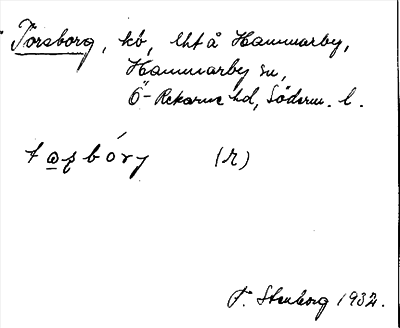 Torsborg, kb, lht å Hammarby,
Hammarby sn,
Ö-Rekarne hd, Söderm. l.
(r)
F. Stenborg 1932.